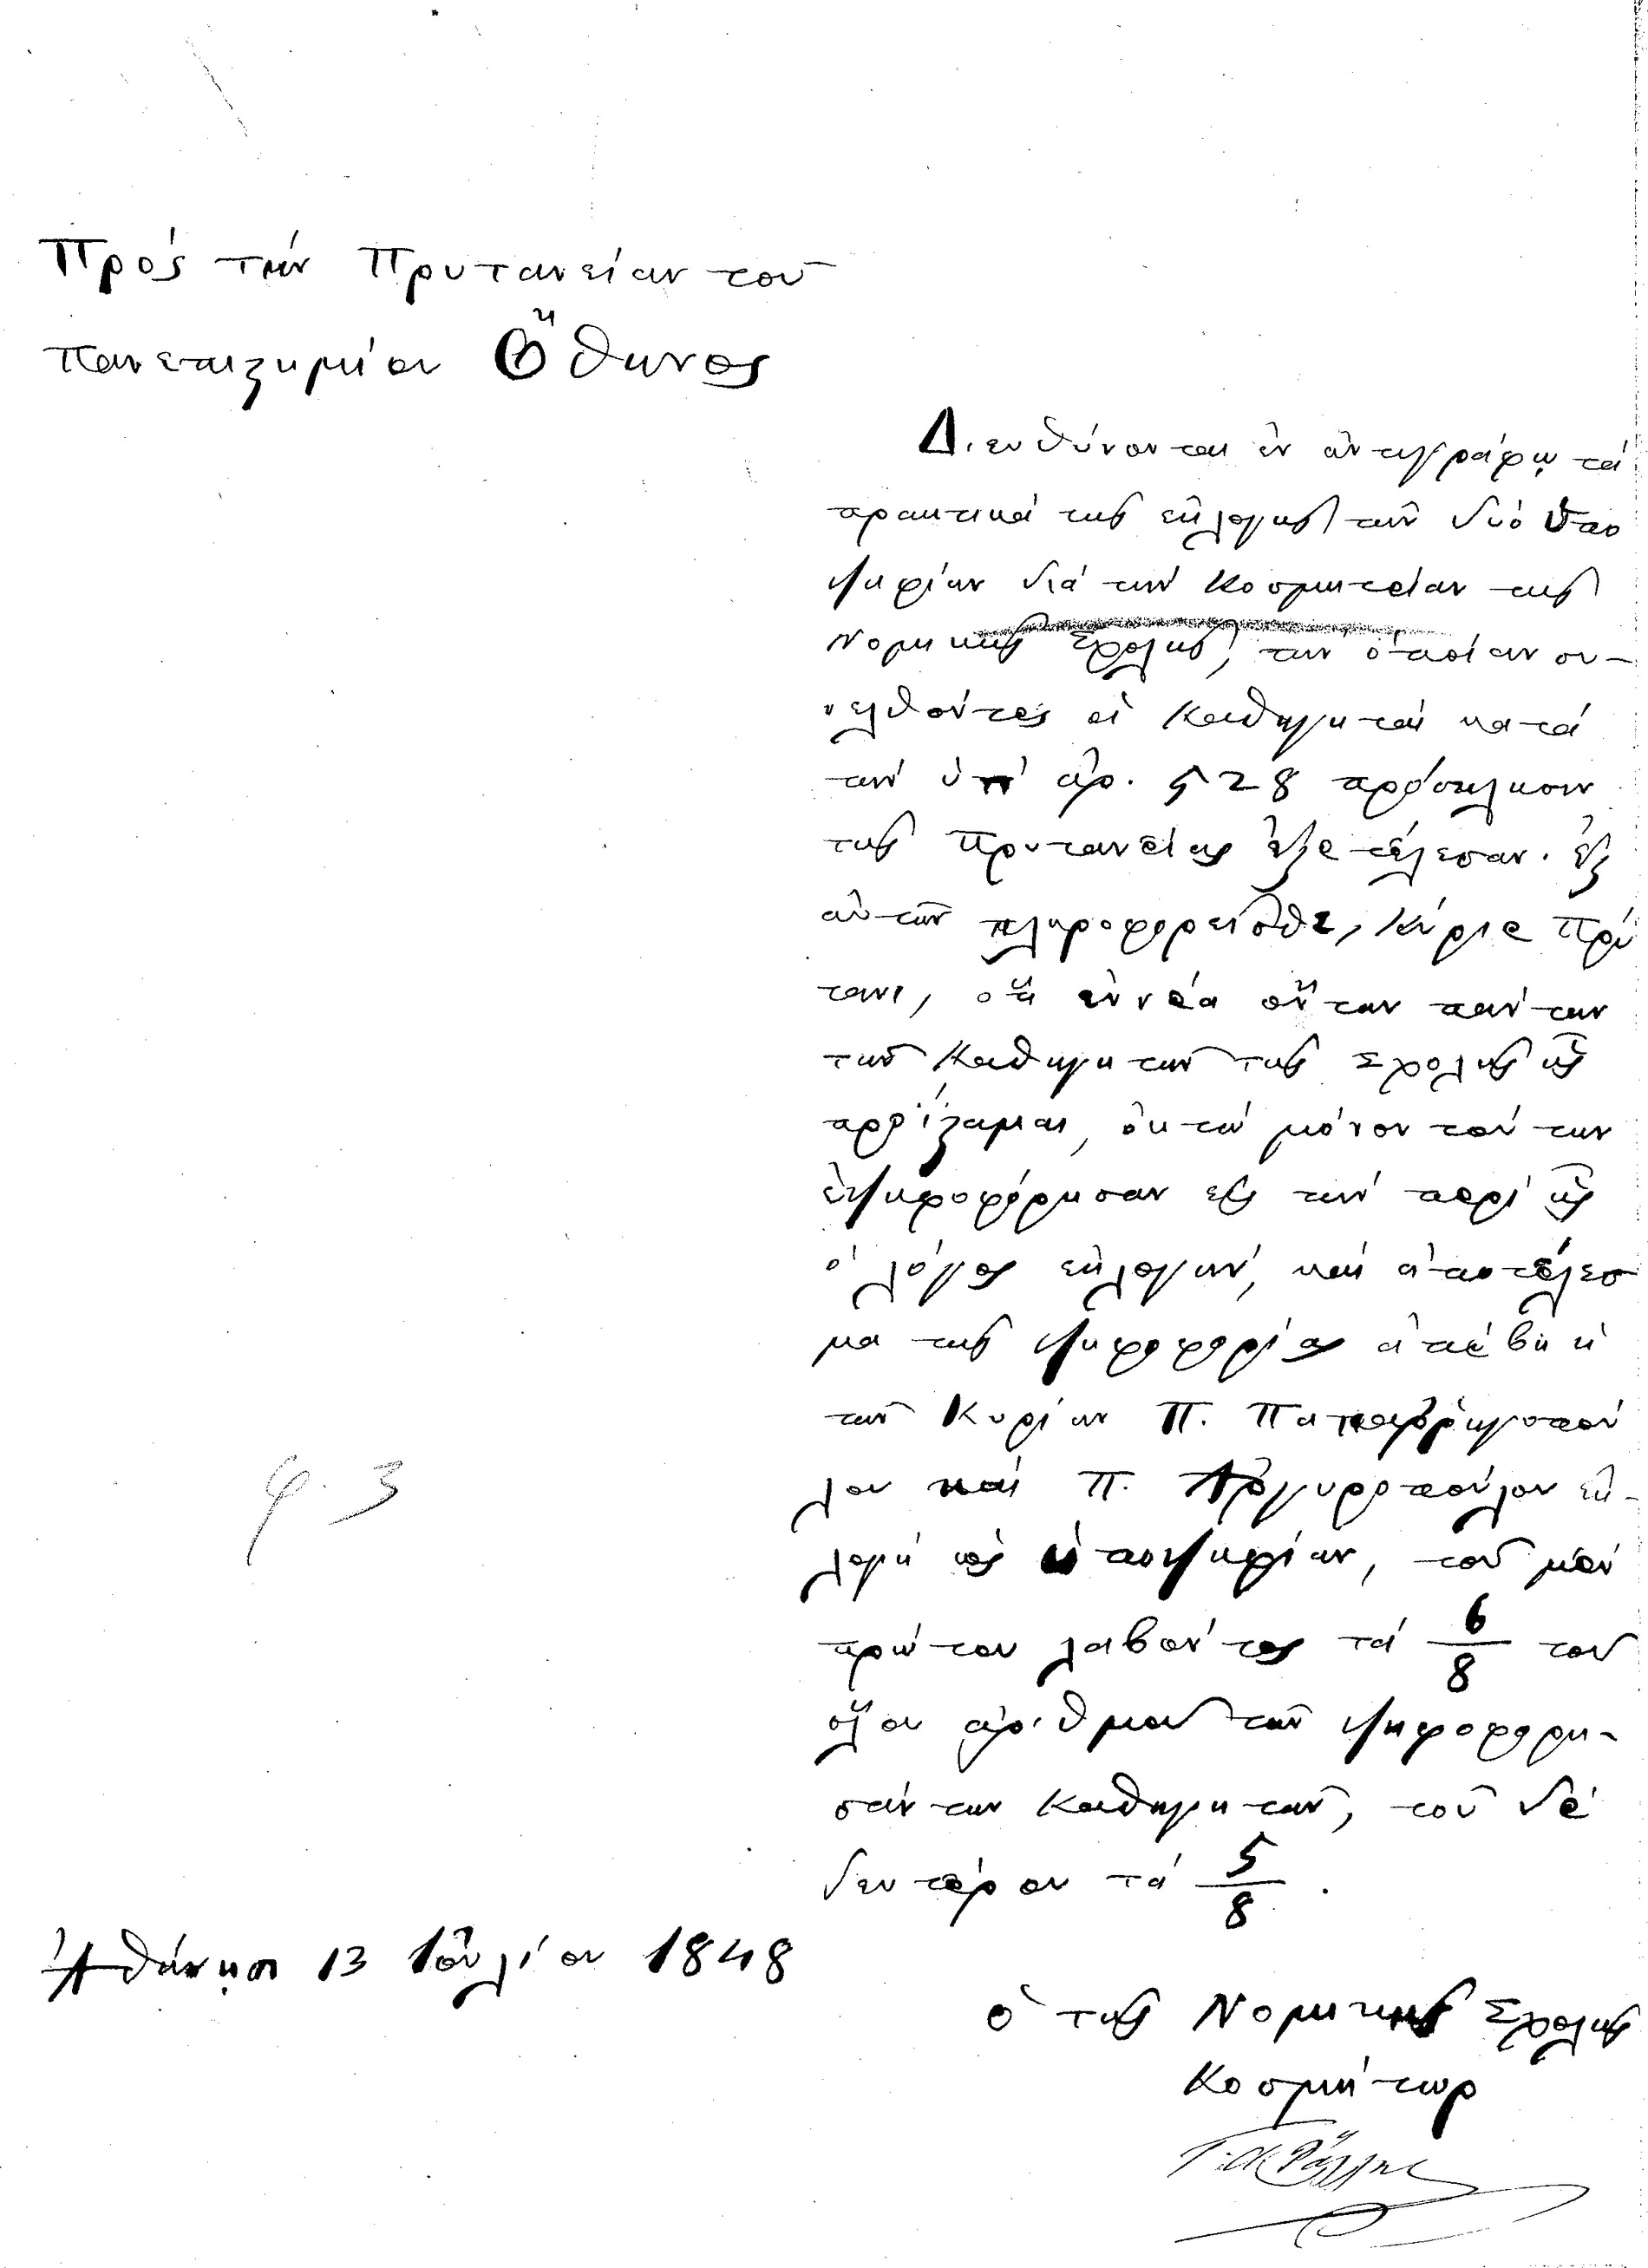 Πρός τήν Πρυτανείαν τοῦ
πανεπιστημίου Ὄθωνος
Διευθύνονται ἐν ἀντιγράφῳ τά
πρακτικά της ἐκλογης των δυό ὑπο
ψηφίων διά την Κοσμητείαν της
Νομικης Σχολης, την ὁποίαν συ-
νελθόντες οἱ Καθηγηταί κατά
την ὑπ' ἀρ. 528 πρόσκλησιν
της Πρυτανείας ἐξετέλεσαν. ἐξ
αὐτῶν πληροφορεῖσθε, Κύριε Πρύ
τανι, ὅτι ἐννέα ὄντων πάντων
τῶν Καθηγητῶν της Σχολης ἧς
προΐσταμαι, ὀκτώ μόνον τούτων
ἐψηφοφόρησαν εἰς τήν περί ἧς
ὁ λόγος ἐκλογήν, καί ἀποτέλεσ
μα της ψηφοφορίας ἀπέβη ἡ
τῶν Κυρίων Π. Παπαρρηγοπού
λου καί Π. Ἀργυροπούλου ἐκ-
λογή ὡς ὑποψηφίων, τοῦ μέν
πρώτου λαβόντος τά 6/8 τοῦ
ὅλου ἀριθμοῦ τῶν ψηφοφορη-
σάντων Καθηγητῶν, τοῦ δέ
δευτέρου τά 5/8.
φ. 3
Ἀθήνησι 13 Ἰουλίου 1848
ὁ της Νομικης Σχολης
Κοσμήτωρ
Γ. Α. Ράλλης